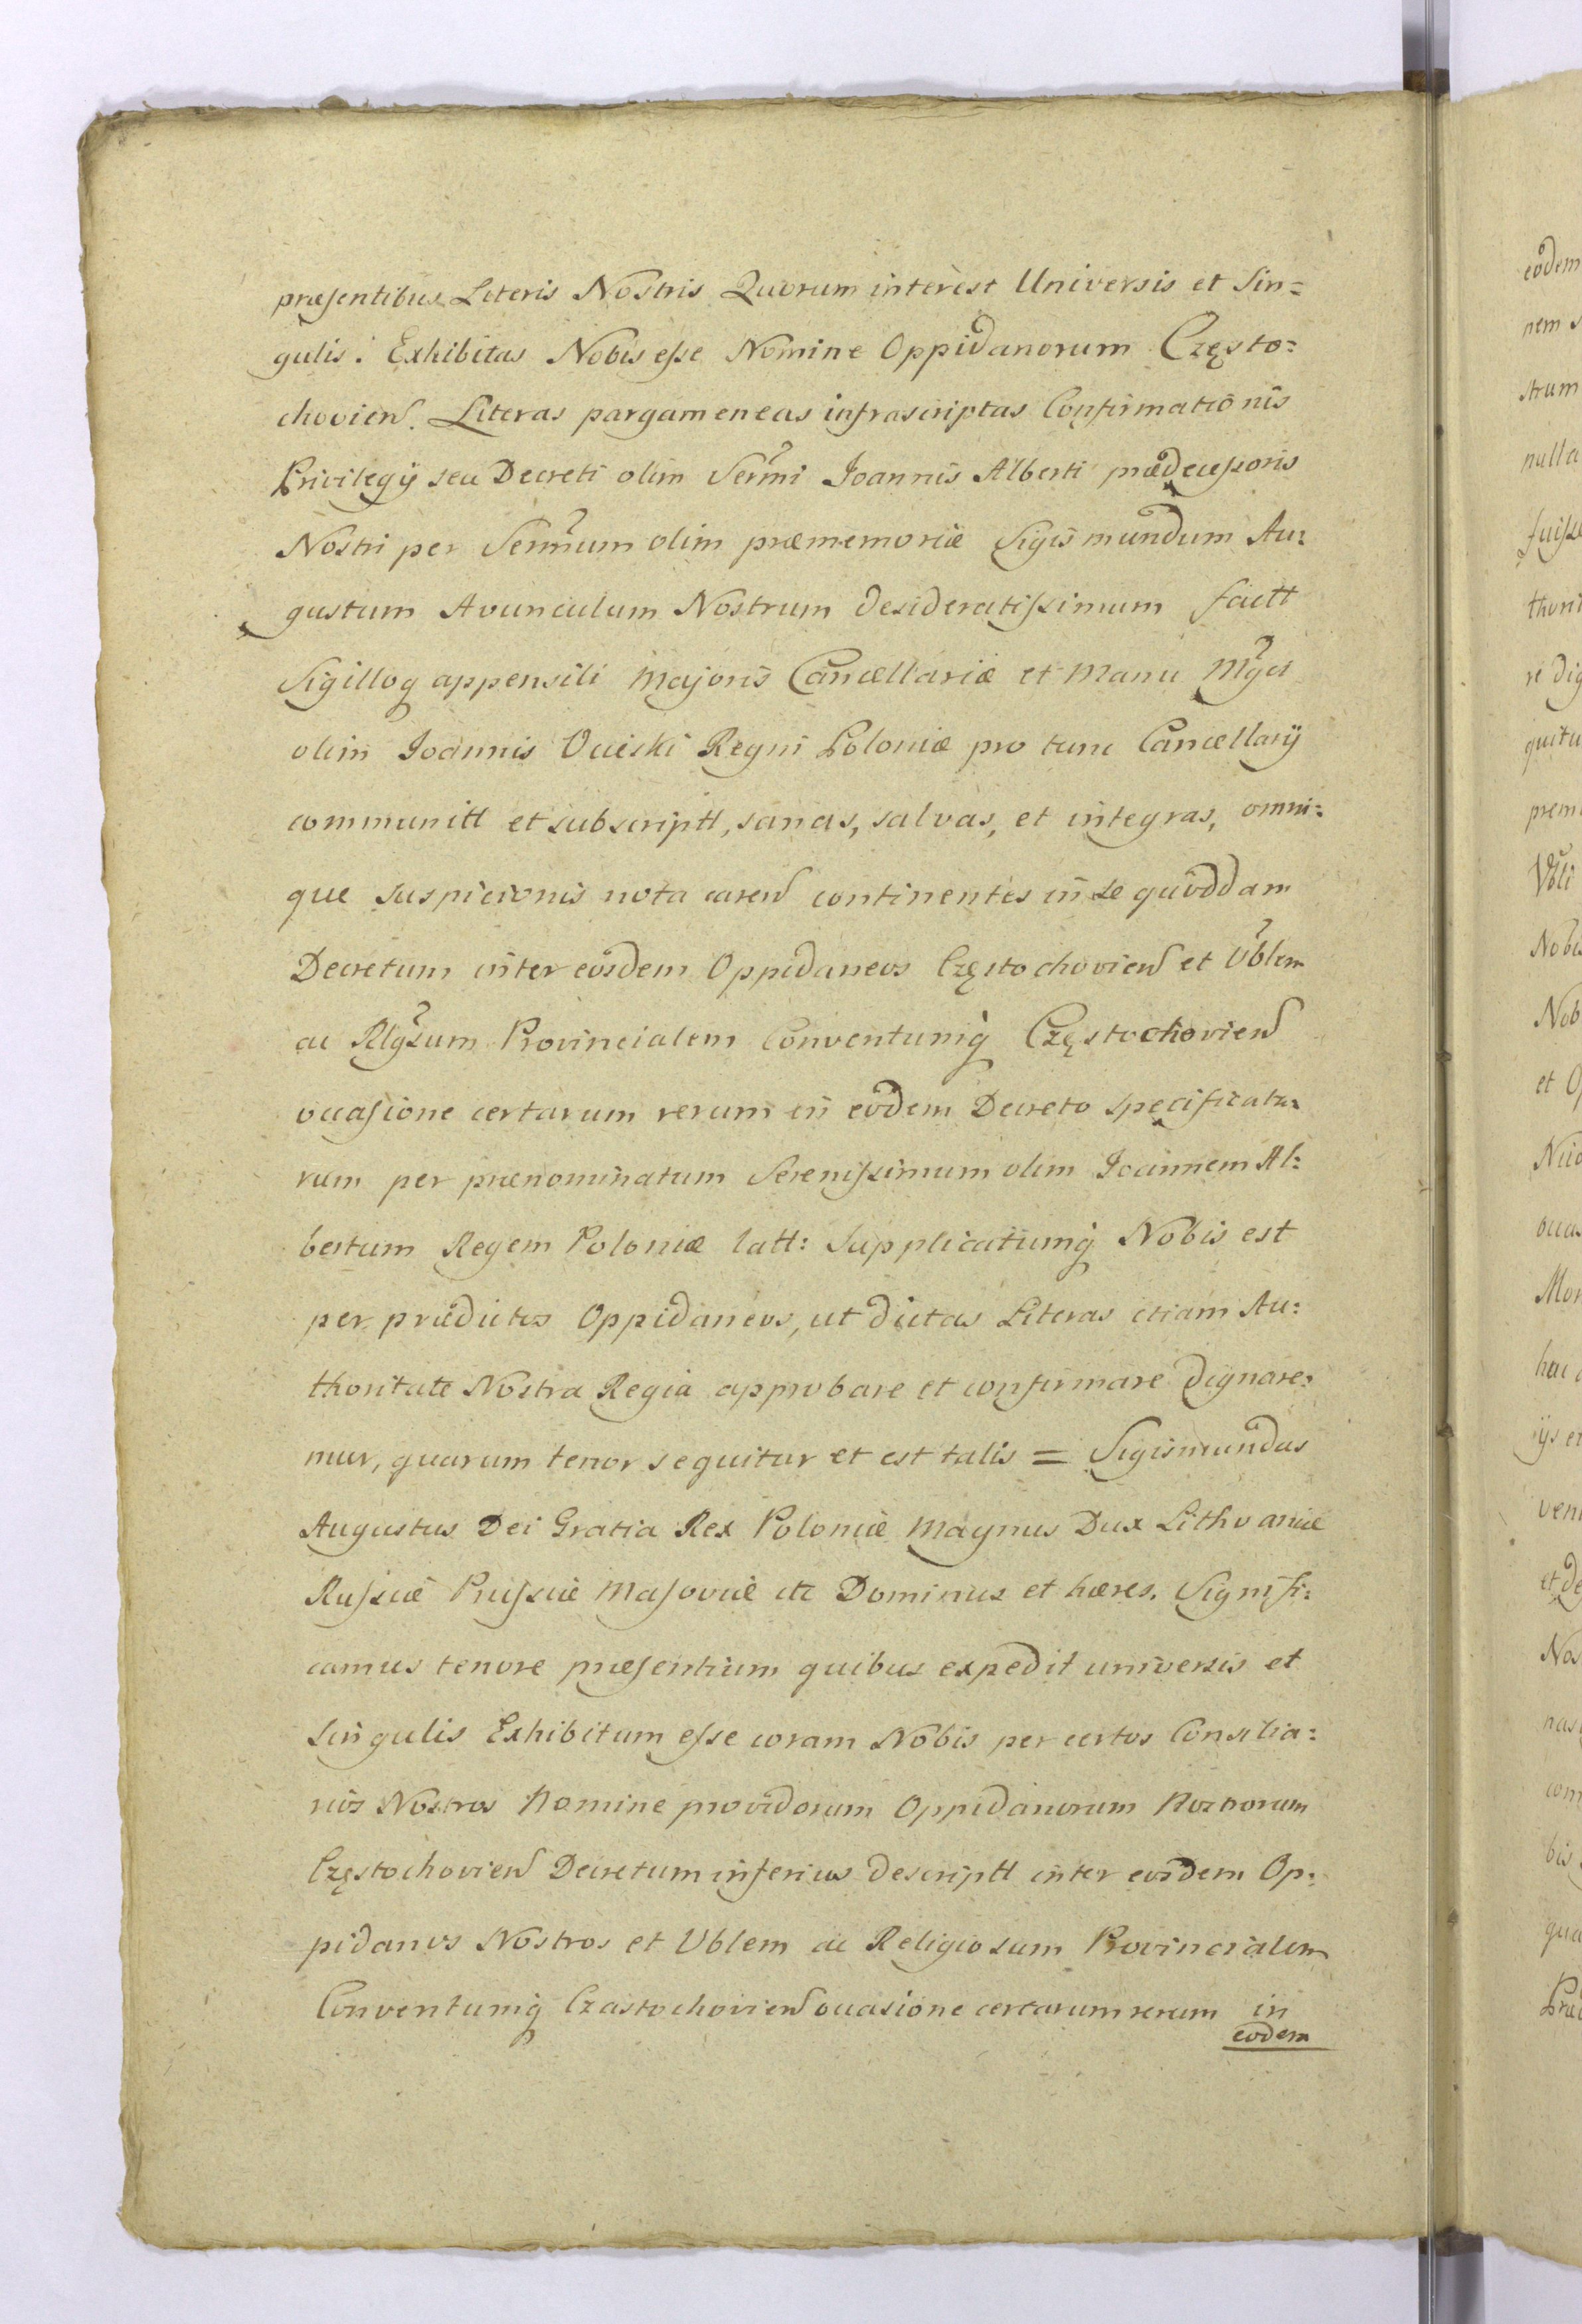 præsentibus Literis Nostris Quorum interest Universis et Sin=
gulis. Exhibitas Nobis esse Nomine Oppidanorum Często=
chovien. Literas pargameneas infrascriptas Confirmationis
Privilegij seu Decreti olim Sermi Joannis Alberti prædecessoris
Nostri per Sermum olim præmemoriæ Sigismundum Au=
gustum Avunculum Nostrum desideratissimum factt
Sigilloq appensili Majoris Cancellariæ et Manu Mgci
olim Joannis Ocieski Regni Poloniæ pro tunc Cancellarij
communitt et subscriptt, sanas, salvas, et integras, omni=
que suspicionis nota caren continentes in se quoddam
Decretum inter eosdem Oppidaneos Częstochovien et Vblem
ac Rlgsum Provincialem Conventumq Częstochovien
occasione certarum rerum in eodem Decreto specificata=
rum per prænominatum Serenissimum olim Joannem Al=
bertum Regem Poloniæ latt: Supplicatumq Nobis est
per prædictos Oppidaneos, ut dictas Literas etiam Au=
thoritate Nostra Regia approbare et confirmare dignare=
mur, quarum tenor sequitur et est talis = Sigismundus
Augustus Dei Gratia Rex Poloniæ Magnus Dux Lithvaniæ
Russiæ Prussiæ Masoviæ etc Dominus et hæres. Signifi=
camus tenore præsentium quibus expedit universis et
singulis Exhibitum esse coram Nobis per certos Consilia=
rios Nostros Nomine providorum Oppidanorum Nostrorum
Częstochovien Decretum inferius descriptt inter eosdem Op=
pidanos Nostros et Vblem ac Religiosum Provincialem
Conventumq Czastochovien occasione certarum rerum in
eodem